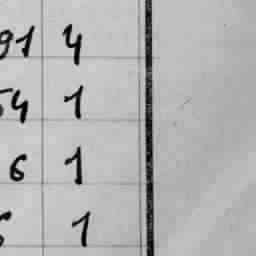 91 4
54 1
6 1
1